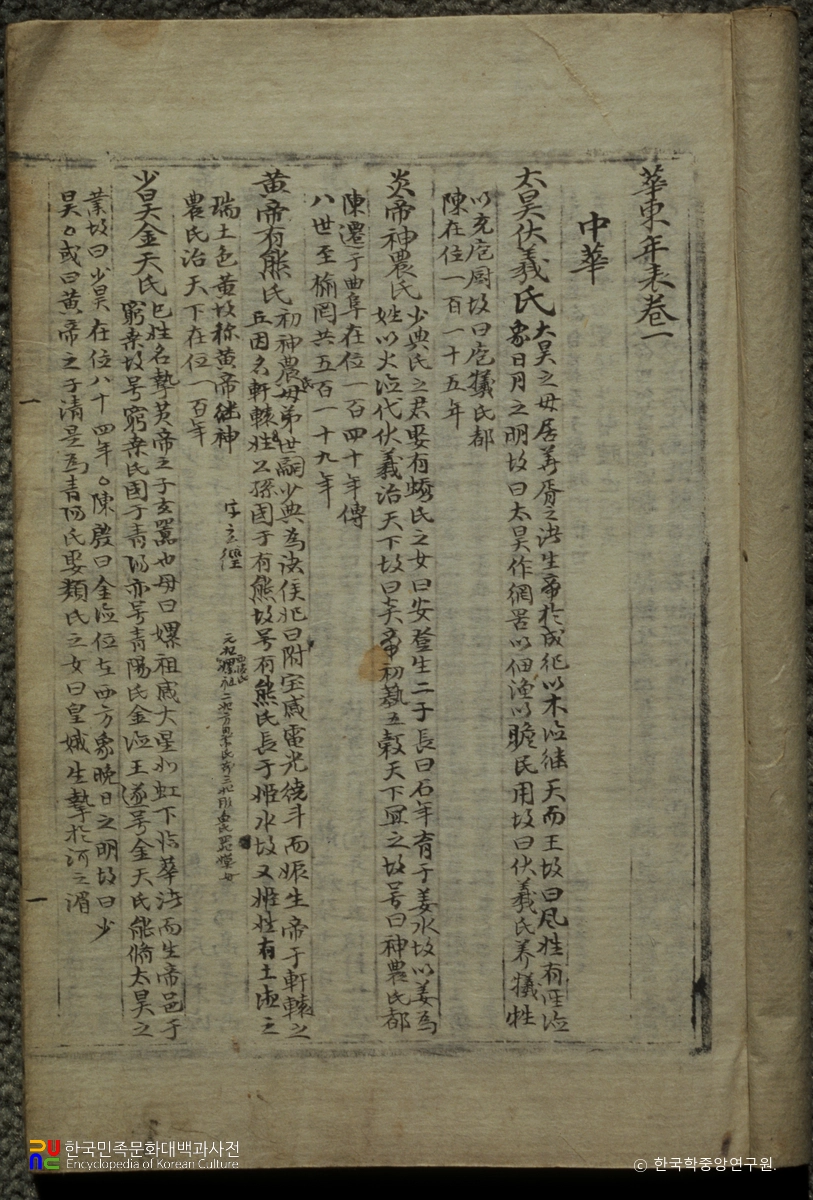 華東年表卷一
中華
太昊伏羲氏
太昊之母居華胥之渚生帝於成紀以木德継天而王故曰風姓有聖德
象日月之明故曰太昊作網罟以佃漁以贍民用故曰伏羲氏养犧牲
以充庖厨故曰庖犧氏都
陳在位一百一十五年
炎帝神農氏
少典氏之君娶有蟜氏之女曰安登生二子長曰石年育于姜水故以姜為
姓以火德代伏羲治天下故曰炎帝初藝五穀天下宜之故号曰神農氏都
陳遷于曲阜在位一百四十年傳
八世至榆罔共五百一十九年
黄帝有熊氏
初神農氏母弟世嗣少典為诸侯妃曰附宝感電光繞斗而娠生帝于軒轅之
丘因名軒轅姓公孫国于有熊故号有熊氏長于姬水故又姬姓有土德之
瑞土色黄故称黄帝継神
農氏治天下在位一百年
少昊金天氏
已姓名摯黄帝之子玄囂也母曰嫘祖感大星如虹下临華渚而生帝邑于
窮桒故号窮桒氏国于青阳亦号青陽氏金德王遂号金天氏能脩太昊之
業故曰少昊在位八十四年。陳殷曰金德位在西方象晚日之明故曰少
昊。或曰黄帝之子清是為青阳氏娶類氏之女曰皇娥生摯於河之湄